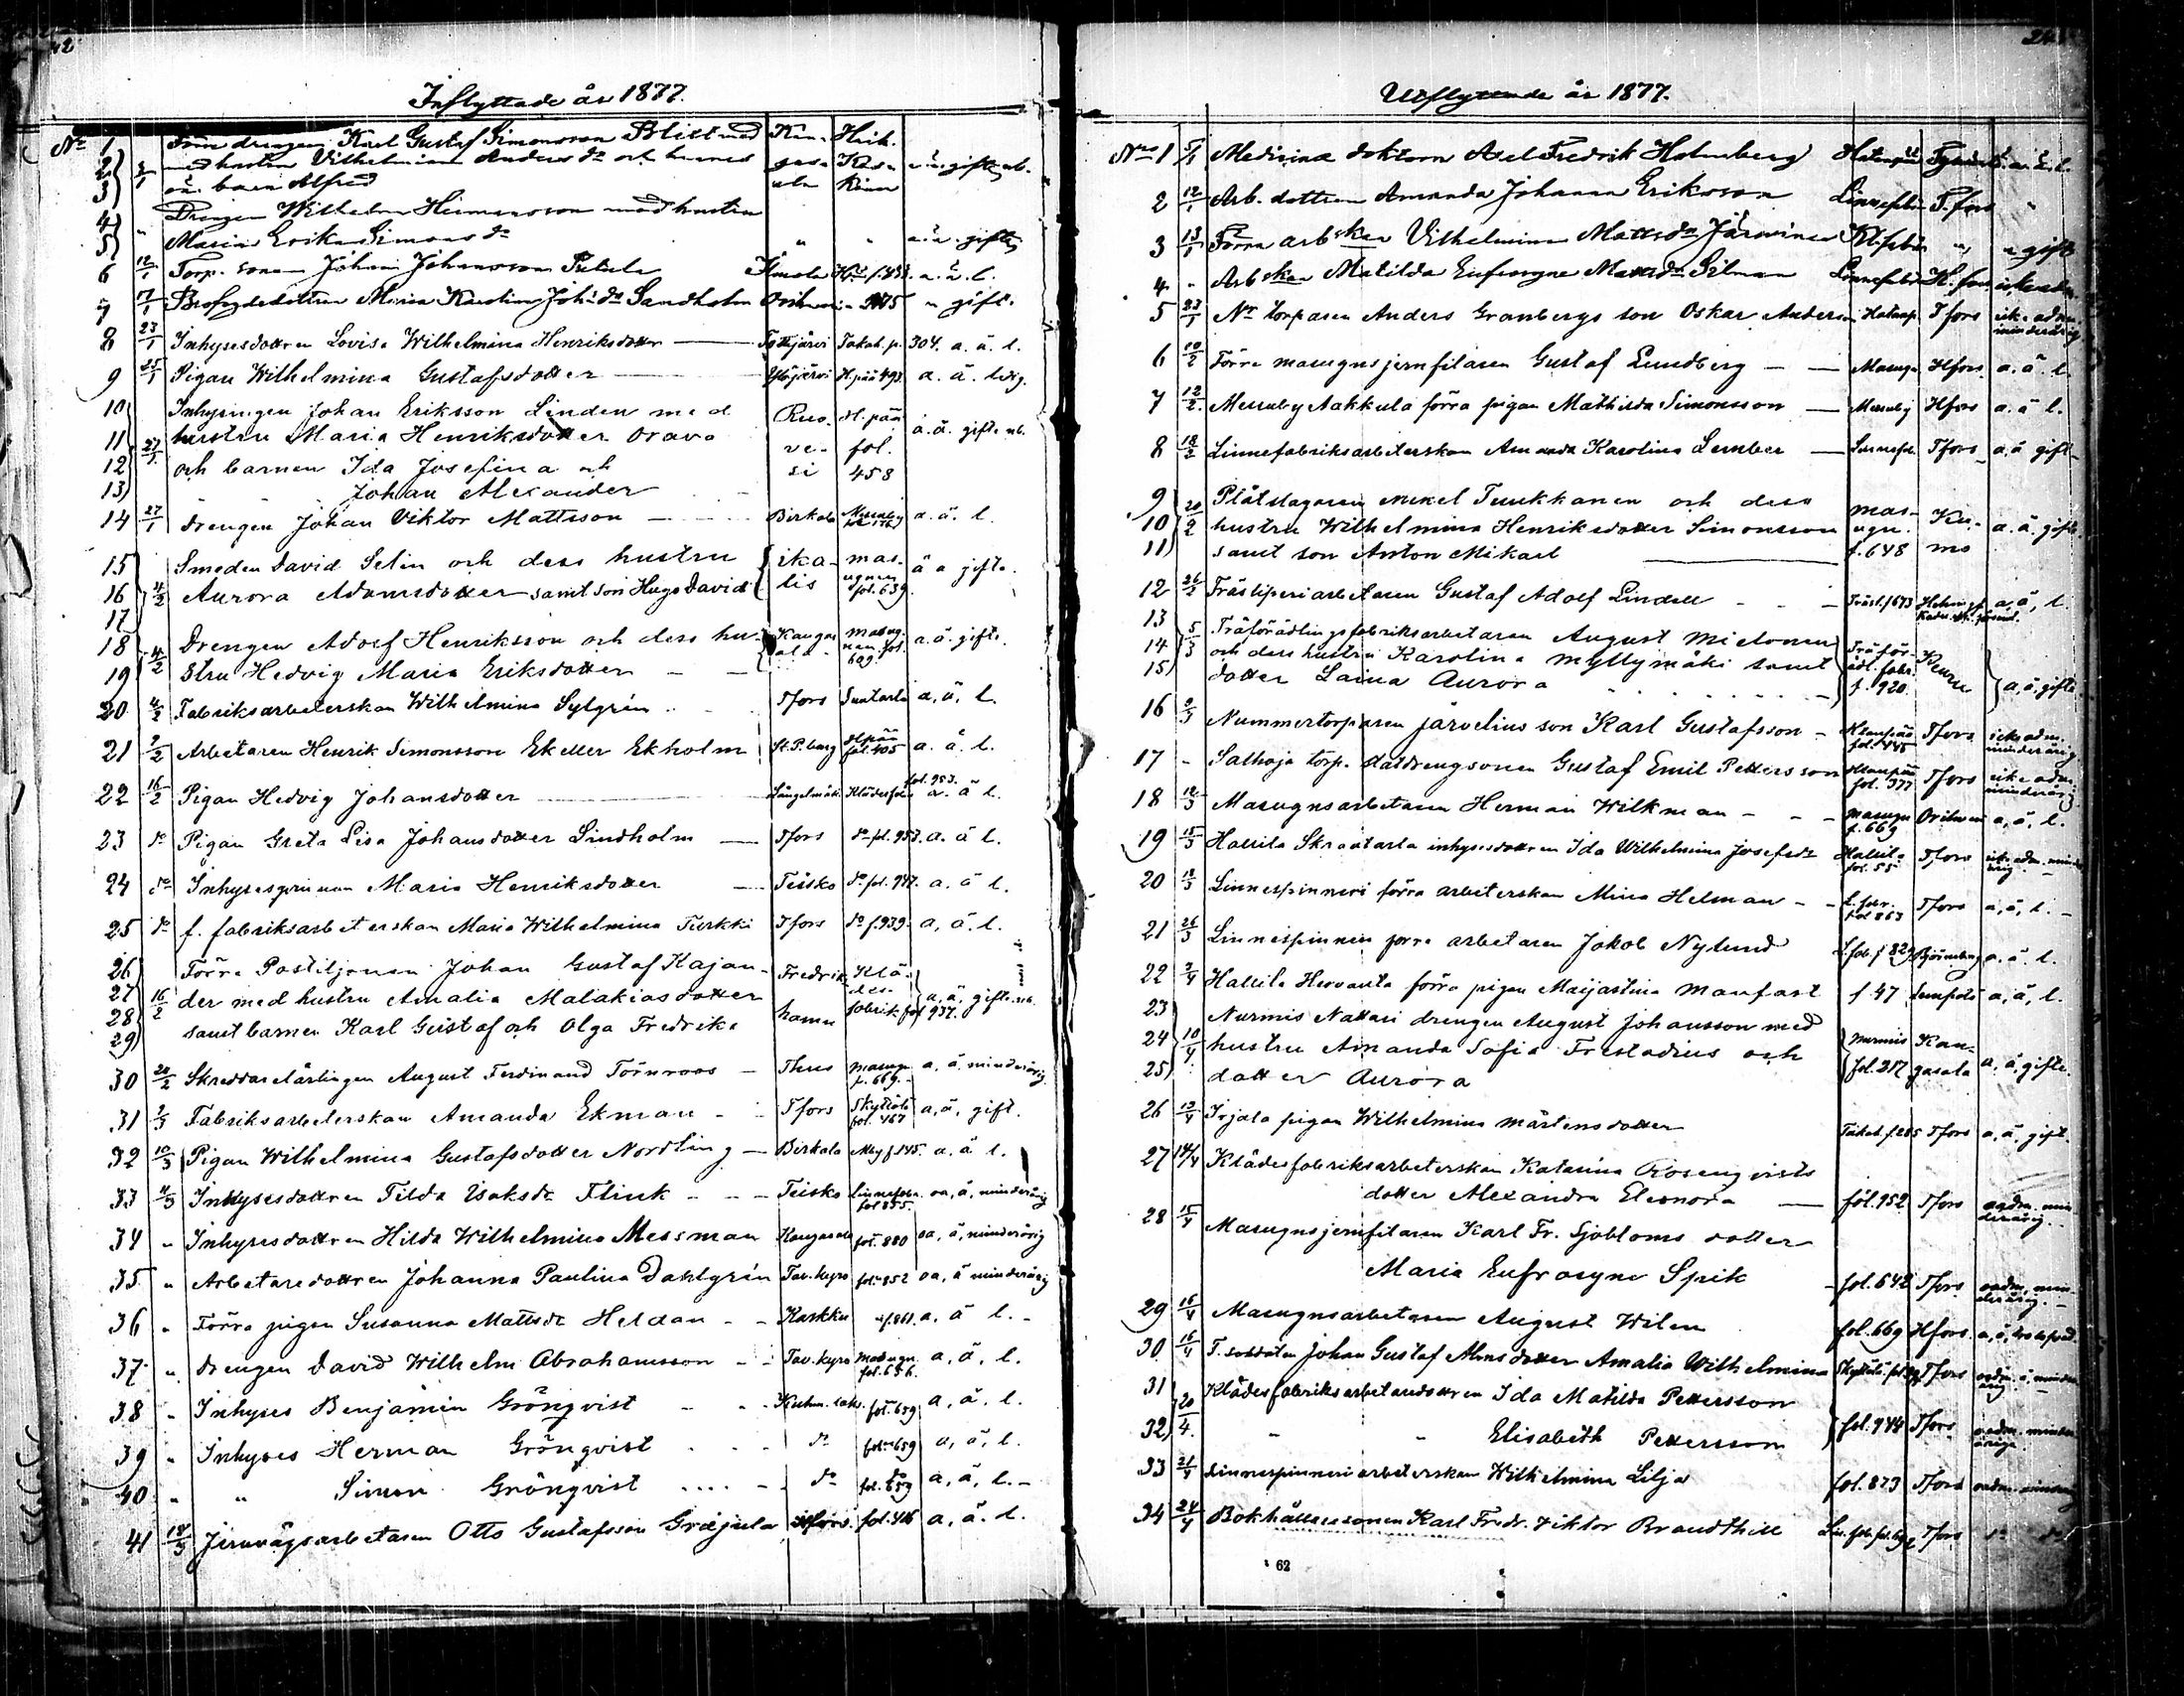 42
Inflyttade år 1877.
No 1 Förre drengen Karl Gustaf Simonsson Blist med Kan- Huk.
2 med hustru Vilhelmina Anders dr och hennes gasa
3 barn Alfred ala
4 Drengen Wilhelm Hermansson med hustru
5 " Maria Erika Simons dr " " gifte
6 12/1 Torp. sonen Johan Johansson a. ä. l.
7 17/1 Maria Karolina Joh: dr Sandholm Orihvesi gift.
8 23/1 Inhysesdottren Lovisa Wilhelmina Henriksdotter Tottijärvi Takah. p. 304. a. ä. l.
9 25/1 Pigan Wilhelmina Gustafsdotter Ylöjärvi H.pää 493. a. ä. ledig.
10 Inhysingen Johan Eriksson Linden med Ruo- H. pää
11 27/1 hustru Maria Henriksdotter Orava ve- fol. a. ä. gifte
12 och barnen Ida Josefina och si 458
13 Johan Alexander
14 27/1 drengen Johan Viktor Mattsson Birkala Messuby a. ä. l.
15 Smeden David Selin och dess hustru ika- mas- ä a gifte.
16 4/2 Aurora Adamsdotter samt son Hugo David lis ugnen fol. 639.
17
18 4/2 Drengen Adolf Henriksson och dess hu- Kangas masug- a. ä. gifte.
19 stru Hedvig Maria Eriksdotter ala nen fol. 699
20 4/2 Fabriksarbeterskan Wilhelmina Sylgrén Tfors a, ä, l.
21 9/2 Arbetaren Henrik Simonsson Ek eller Ekholm St. P. burg Hpää fol. 405 a. ä. l.
22 16/2 Pigan Hedvig Johansdotter Längelmäki Klädesfabr fol. 953. a. ä l.
23 do Pigan Greta Lisa Johansdotter Lindholm Tfors do fol. 953. a. ä l.
24 do Inhysesqvinnan Maria Henriksdotter Teisko do fol. 947. a. ä l.
25 do f. fabriksarbeterskan Maria Wilhelmina Turkki Tfors do f. 939. a, ä. l.
26 Förre Postiljonen Johan Gustaf Kajan- Fredriks Klä-
27 16/2 der med hustru Amalia Malakiasdotter des- a, ä. gifte
28 samt barnen Karl Gustaf och Olga Fredrika hamn fabrik fol 937.
29
30 20/2 Skreddarelärlingen August Ferdinand Törnroos Thus masugn f. 669. a, ä. minderårig.
31 2/3 Fabriksarbeterskan Amanda Ekman Tfors Skyttälä fol. 467 a, ä, gift.
32 10/3 Pigan Wilhelmina Gustafsdotter Nordling Birkala Mby f 145. a. ä l.
33 11/3 Inhysesdottren Tilda Isaksdr Flink Teisko Linnefabr. fol 855. oa, ä, minderårig
34 " Inhysesdottren Hilda Wilhelmina Messman Kangasala fol. 880 oa, ä, minderårig
35 " Arbetaredottren Johanna Paulina Dahlgrén Tav. kyro fol. 852 oa, ä minderårig
36 " Förra pigan Susanna Mattsdr Heldan Karkku f. 861. a, ä l.
37 " drengen David Wilhelm Abrahamsson Tav. kyro Masugn. fol. 656. a, ä, l.
38 " Inhyses Benjamin Grönqvist Kuhm. laks. fol. 659 a, ä, l.
39 " Inhyses Herman Grönqvist do fol. 659 a, ä, l.
40 " " Simon Grönqvist do fol. 659 a, ä, l.
41 18/3 Jernvägsarbetaren Otto Gustafsson fol. 416 a, ä. l.
Utflyttade år 1877.
No 1 5/1 Medicine doktorn Axel Fredrik Holmberg Hatanpää
2 12/1 Arb. dottren Amanda Johanna Eriksson Linnefabr T. fors "
3 13/1 Förra arbskan Vilhelmina Mattsdr Järvinen " gift
4 " Arbskan Matilda Eufrosyne Mattsdr Silman Linnefabr H. fors
5 23/1 No torparen Anders Granbergs son Oskar Anders Hatanp. Tfors icke adm. minderårig
6 10/2 Förre masugnsjernfilaren Gustaf Lundberg Masugn Hfors a. ä. l.
7 12/2 Messuby Aakkula förra pigan Mathilda Simonsson Messuby Hfors a. ä l.
8 18/2 Linnefabriksarbeterskan Amanda Karolina Lember Linnefabr. Tfors a, ä gift
9 20/2 Plåtslagaren Mikel Tuukkanen och dess mas-
10 hustru Wilhelmina Henriksdotter Simonsson ugn. Ku- a. ä. gifte
11 samt son Anton Mikael f. 648 mo
12 26/2 Träsliperiarbetaren Gustaf Adolf Lindell Träsl. f 673 a, ä, l.
13 5/3 Träförädlingsfabriksarbetaren August Mietonen Träför-
14 och dess hustru Karolina Myllymäki samt ädl. fabr. Keuru
15 dotter Laina Aurora f. 920. a, ä, gifte
16 9/3 Nummertorparen Järvelius son Karl Gustafsson Hatanpää fol. 445 Tfors icke adm. minderårig
17 - Salhoja torp. statdrengsonen Gustaf Emil Pettersson Hatanpää fol. 377 Tfors icke adm. minderårig
18 12/3 Masugnsarbetaren Herman Wilkman masugn f. 669 Orihvesi a, ä, l.
19 15/3 Hallila Skraatarla inhysesdottren Ida Wilhelmina Josefsdr Hallila fol. 55 Tfors icke adm. minderårig.
20 18/3 Linnespinneri förra arbeterskan Mina Helman L. fabr. fol 863 Tfors a, ä, l.
21 26/3 Linnespinneri förre arbetaren Jakob Nylund L. fab. f 829 Björneborg a. ä. l.
22 2/4 Hallila Hervanta förra pigan Maijastina Manfast f 47 Lempälä a, ä, l.
23 Nurmis Nattari drengen August Johansson med
24 10/4 hustru Amanda Sofia Frestadius och Nurmis Kan-
25 dotter Aurora fol. 217 gasala a, ä, gifte.
26 13/4 Irjala pigan Wilhelmina Mårtensdotter Takah. f. 285 Tfors a, ä, gift.
27 14/4 Klädesfabriksarbeterskan Katarina Rosenqvists
dotter Alexandra Eleonora fol. 952 Tfors oadm. minderårig.
28 15/4 Masugnsjernfilaren Karl Fr. Sjobloms dotter
Maria Eufrosyne Spik fol. 642 Tfors oadm. minderårig.
29 16/4 Masugnsarbetaren August Wilen fol. 669 Hfors
30 16/4 F. soldaten Johan Gustaf Alms dotter Amalia Wilhelmina Skyttälä Tfors
31 20/4 Klädesfabriksarbetaredottren Ida Matilda Pettersson
32 " " Elisabeth Pettersson fol. 944 Tfors oadm. minderårige.
33 21/4 Linnespinneriarbeterskan Wilhelmina Lilja fol. 873 Tfors
34 24/4 Bokhållaresonen Karl Fredr. Viktor Brandthill Tfors do do
62